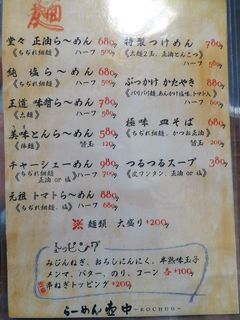 堂々 正油ら～めん 680円
《ちぢれ細麺》 ハーフ 500
純 塩ら～めん 680円
《ちぢれ細麺》 ハーフ 500
王道 味噌ら～めん 780円
《太麺》 ハーフ
美味とんら～めん 580円
《細麺》 替玉 120
チャーシューめん 980円
《ちぢれ細麺 正油 or 塩》
元祖 トマトら～めん 880円
《ちぢれ細麺、塩》 ハーフ 680
特製つけめん 780円
《太麺2玉、正油とんこつ》
ハーフ 580
ぶっかけ かたやき 880円
《パリパリ麺、あんかけ塩味、トマト入》
ハーフ 680
極味 皿そば 580円
《ちぢれ細麺、かつお正油》
替玉
つるつるスープ 380円
《皮ワンタン、正油 or 塩》
※ 麺類 大盛り +200円
とっピング
みじんねぎ、おろしにんにく、半熟味玉子
メンマ、バター、のり、コーン 各+100円
串ねぎトッピング +200円
らーめん 壺中 ~KOCHUU~